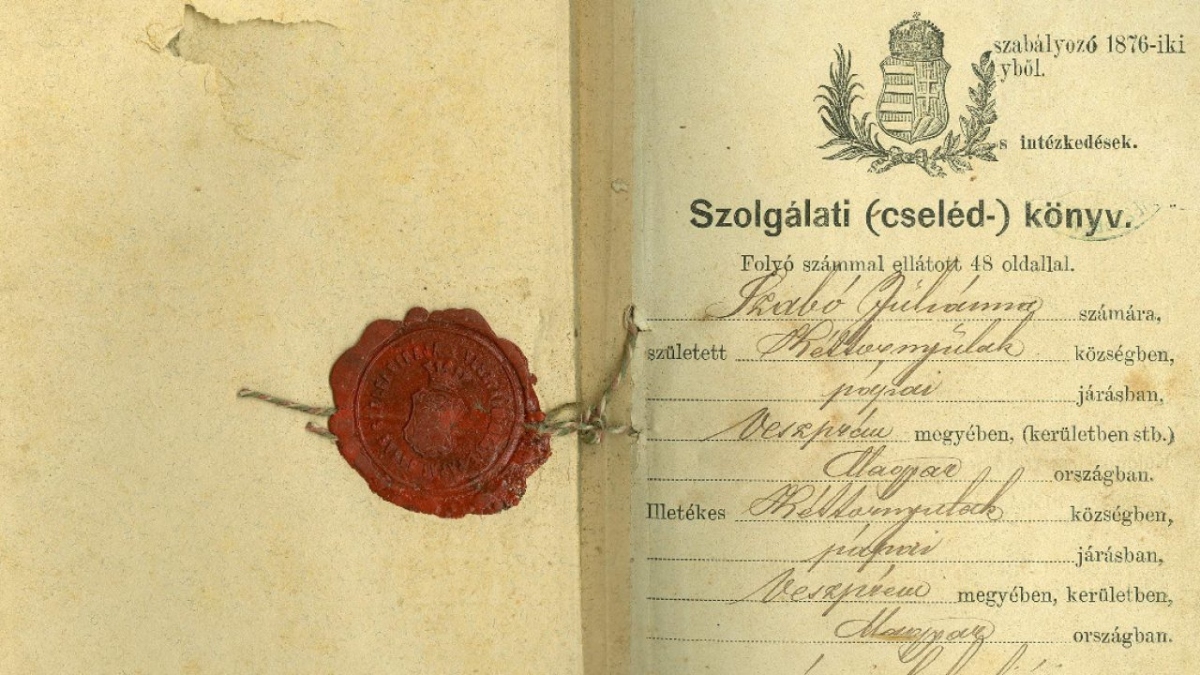 szabályozó 1876-iki
yből.
s intézkedések.
Szolgálati (cseléd-) könyv.
Folyó számmal ellátott 48 oldallal.
Szabó Júliánna számára,
született Kéttornyúlak községben,
pápai járásban,
Veszprém megyében, (kerületben stb.)
Magyar országban.
Illetékes Kéttornyulak községben,
pápai járásban,
Veszprém megyében, kerületben,
Magyar országban.